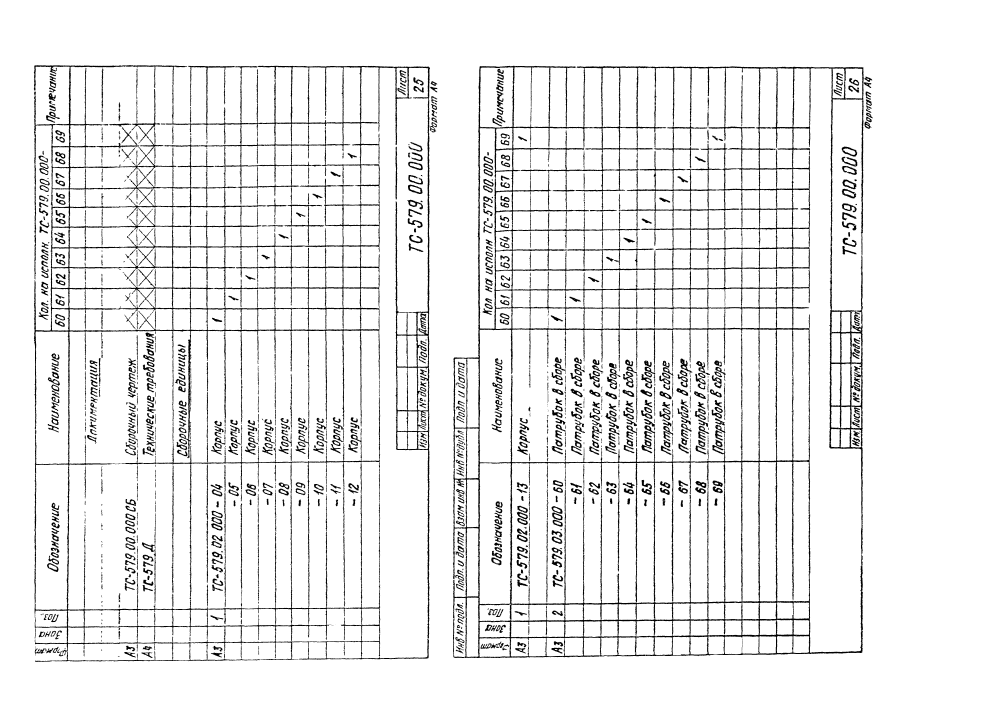 Формат Зона Поз. Обозначение Наименование Кол. на исполн. ТС-579.00.000- Примечани
60 61 62 63 64 65 66 67 68 69
Документация
А3 ТС-579.00.000 СБ Сборочный чертеж
А4 ТС-579 Д Технические требования
Сборочные единицы
А3 1 ТС-579.02.000 - 04 Корпус 1
- 05 Корпус 1
- 06 Корпус 1
- 07 Корпус 1
- 08 Корпус 1
- 09 Корпус 1
- 10 Корпус 1
- 11 Корпус 1
- 12 Корпус 1
Изм Лист № докум. Подп. Дата
ТС-579.00.000
Лист
25
Формат А4
Инв № подл. Подп. и дата Взам инв № Инв № дубл Подп. и дата
Формат Зона Поз Обозначение Наименование Кол на исполн. ТС-579.00.000- Примечание
60 61 62 63 64 65 66 67 68 69
А3 1 ТС-579.02.000 - 13 Корпус 1
А3 2 ТС-579.03.000 - 60 Патрубок в сборе 1
- 61 Патрубок в сборе 1
- 62 Патрубок в сборе 1
- 63 Патрубок в сборе 1
- 64 Патрубок в сборе 1
- 65 Патрубок в сборе 1
- 66 Патрубок в сборе 1
- 67 Патрубок в сборе 1
- 68 Патрубок в сборе 1
- 69 Патрубок в сборе 1
Изм Лист № докум. Подп. Дата
ТС-579.00.000
Лист
26
Формат А4